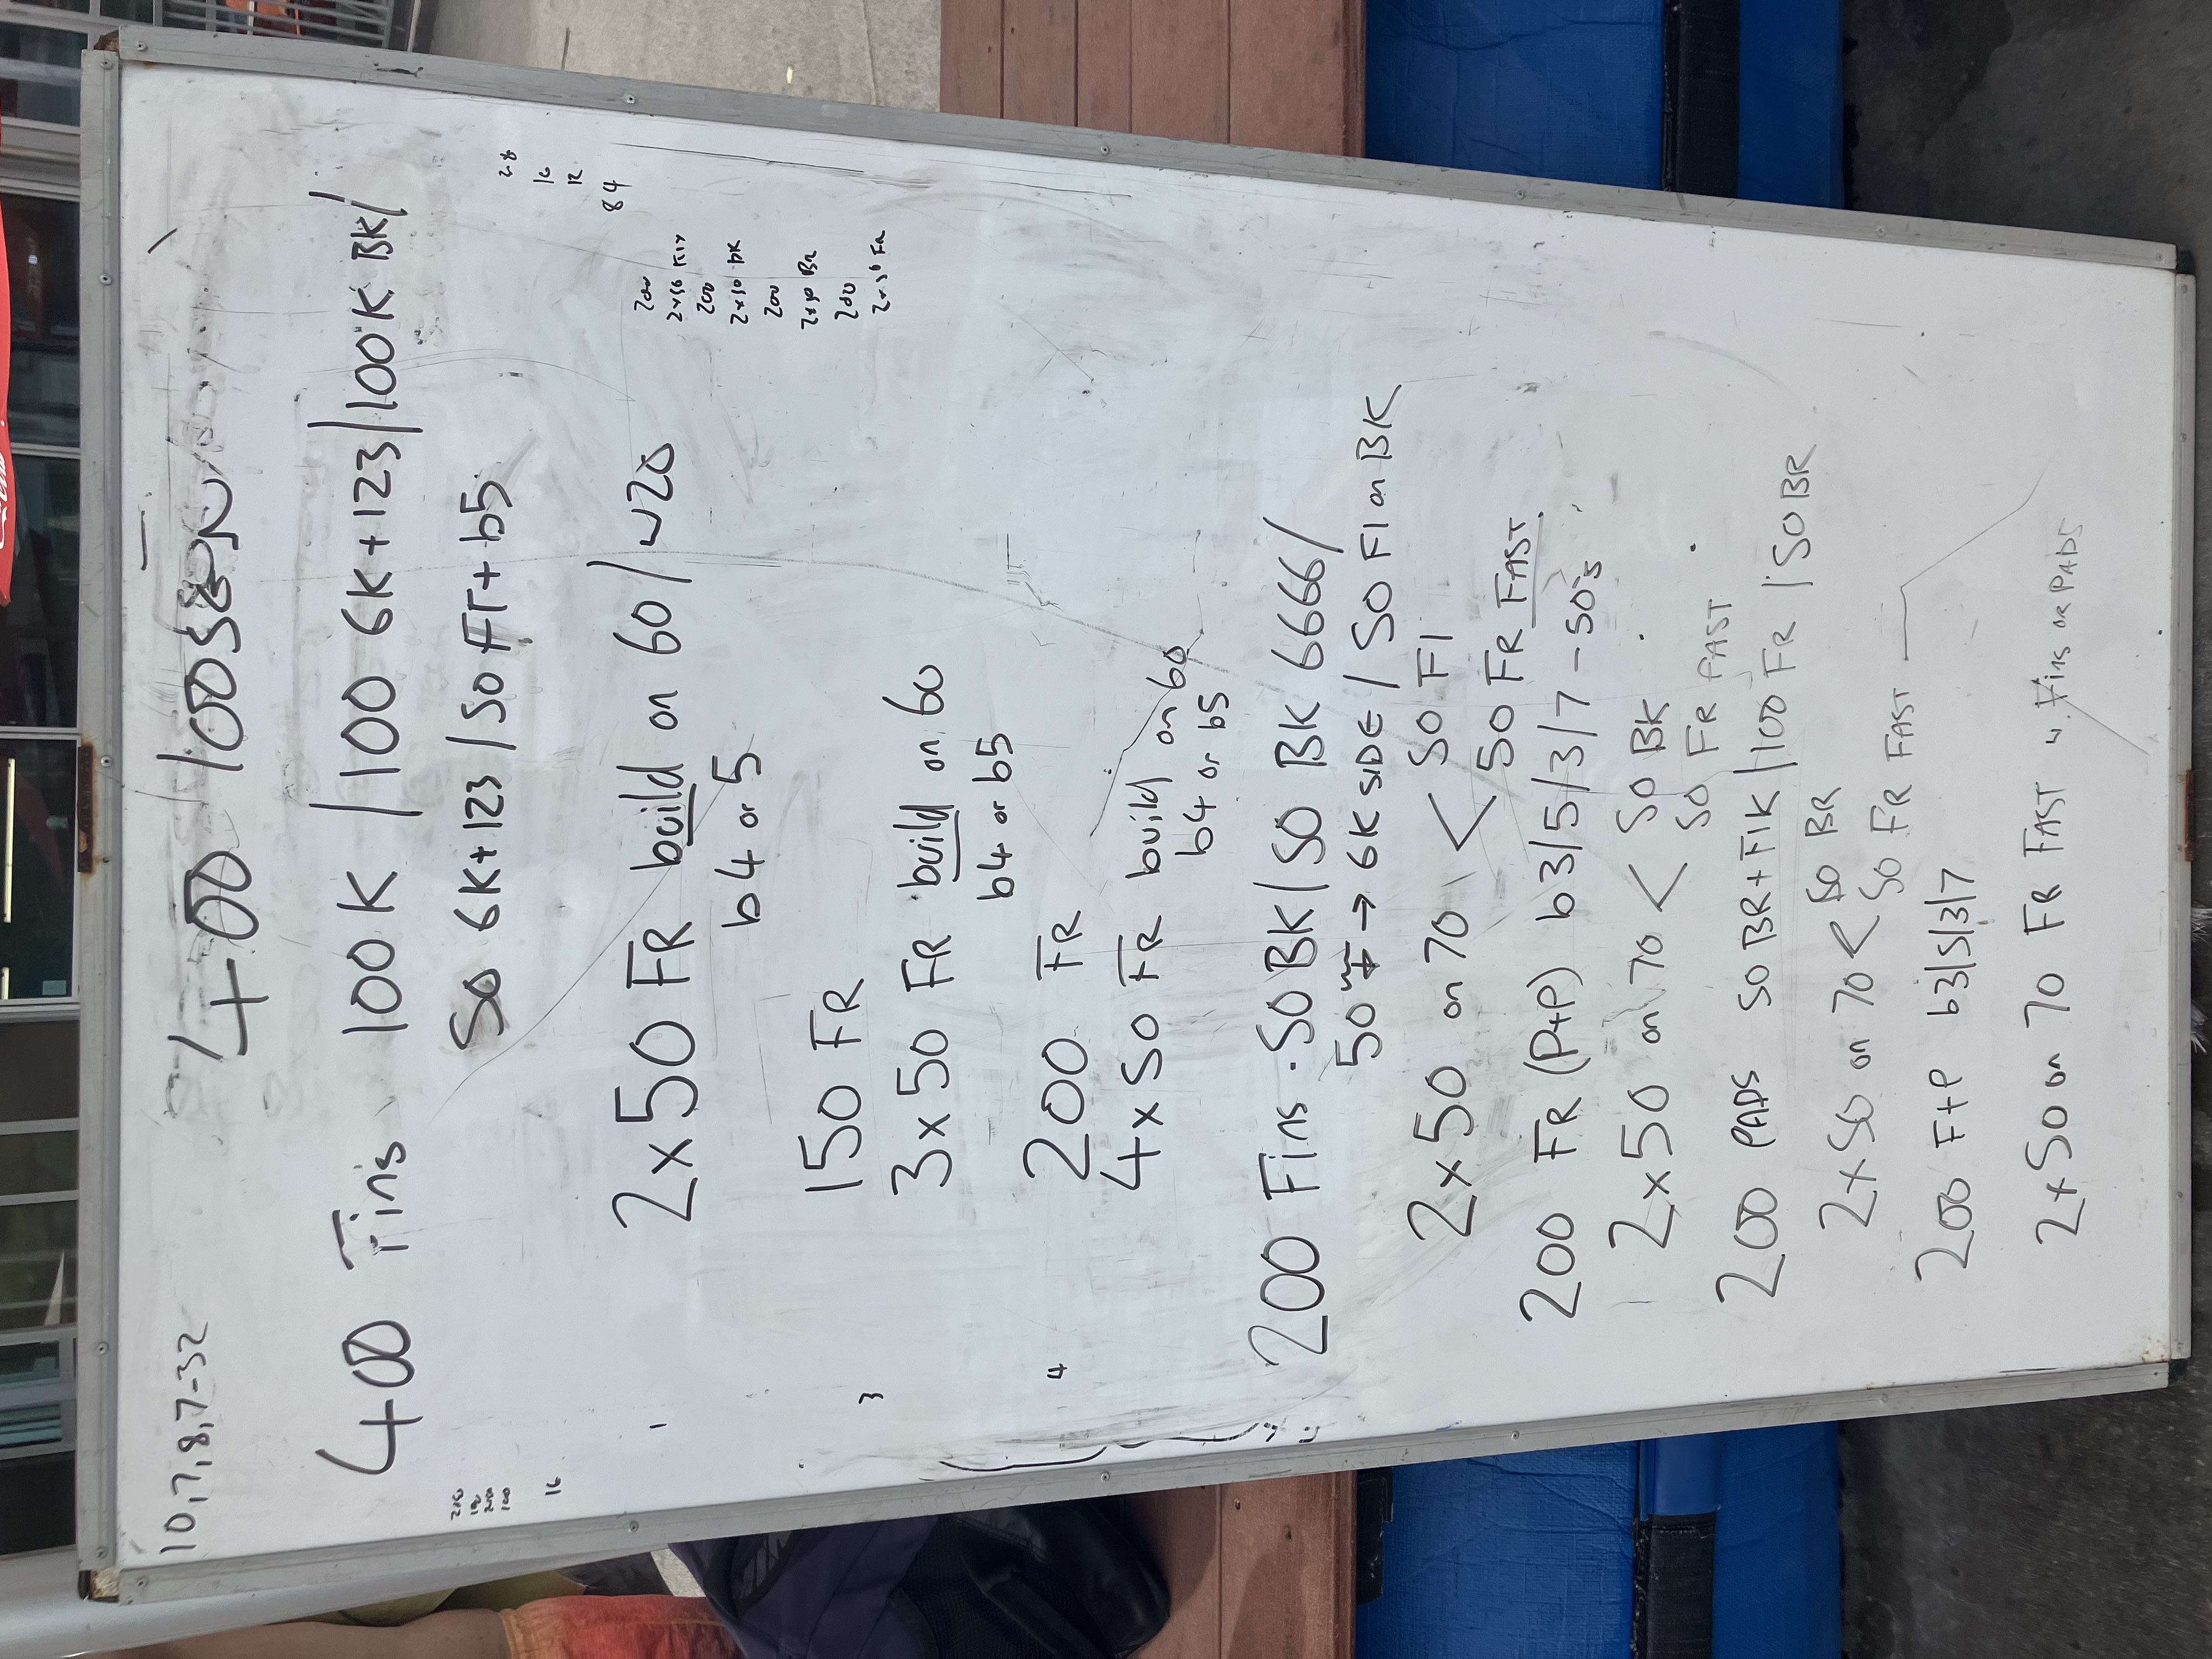 10,7,8,7-32
400 loosen
400 Fins 100K /100 6K+123/100K BK/
50 6K+123/50 FT+b5
2x50 FR build on 60/ w20
b4 or 5
150 FR
3x50 FR build on 60
b4 or b5
200 FR
4x50 FR build on 60
b4 or b5
200 Fins 50 BK/50 BK 6666/
50 → 6K SIDE / 50 FI on BK
2x50 on 70 < 50 FI
50 FR FAST
200 FR (P+P) b3/5/3/7-50's
2x50 on 70 < 50 BK
50 FR FAST
200 PADS 50 BR+FIK/100 FR/50BR
2x50 on 70 < 50 BR
50 FR FAST
200 F+P b3/5/3/7
2x50 on 70 FR FAST w Fins or PADS
1
3
4
16
28
16
12
84
200
2x50
200
2x50 BK
200
2x50 BR
200
2x50 FR